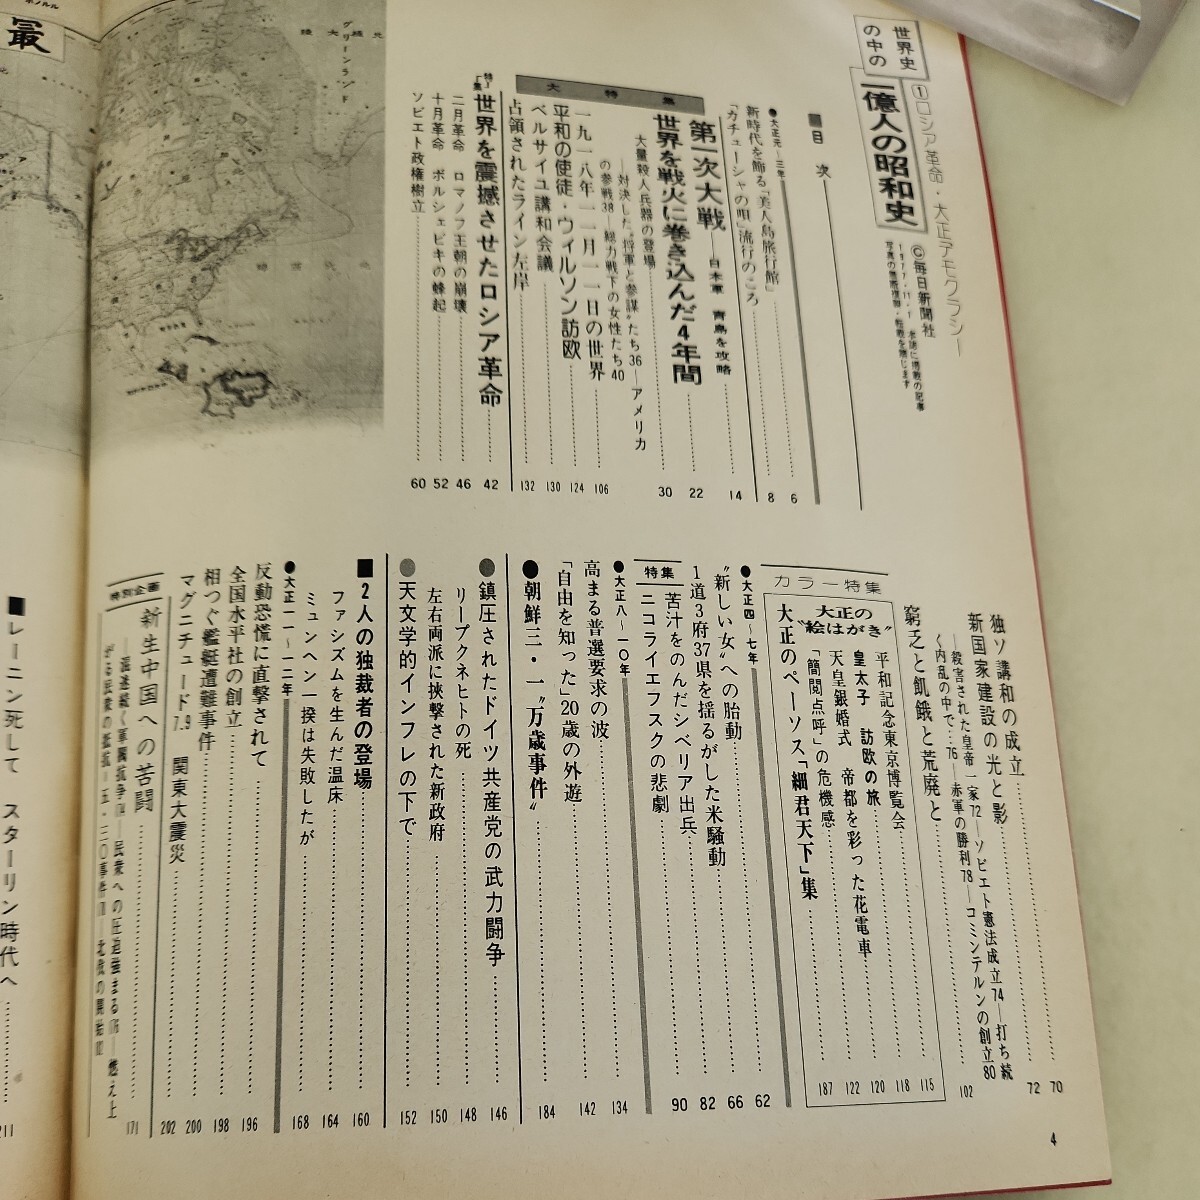 世界史の中の
一億人の昭和史
①ロシア革命・大正デモクラシー
©毎日新聞社
■目次
●大正元―三年
新時代を飾る「美人島旅行館」 6
「カチューシャの唄」流行のころ 8
大特集
第一次大戦―日本軍 青島を攻略 14
世界を戦火に巻き込んだ4年間 22
大量殺人兵器の登場 30
―対決した“将軍と参謀”たち36―アメリカの参戦38―総力戦下の女性たち40
一九一八年一一月一一日の世界 106
平和の使徒・ウィルソン訪欧 124
ベルサイユ講和会議 130
占領されたライン左岸 132
特集
世界を震撼させたロシア革命 42
二月革命 ロマノフ王朝の崩壊 46
十月革命 ボルシェビキの蜂起 52
ソビエト政権樹立 60
独ソ講和の成立 70
新国家建設の光と影 72
―殺害された皇帝一家72―ソビエト憲法成立74―打ち続く内乱の中で76―赤軍の勝利78―コミンテルンの創立80
窮乏と飢餓と荒廃と 102
カラー特集
大正の“絵はがき”
平和記念東京博覧会 115
皇太子 訪欧の旅 118
天皇銀婚式 帝都を彩った花電車 120
「簡閲点呼」の危機感 122
大正のペーソス「細君天下」集 187
●大正四～七年
“新しい女”への胎動 62
1道3府37県を揺るがした米騒動 66
特集
苦汁をのんだシベリア出兵 82
ニコライエフスクの悲劇 90
●大正八～一〇年
高まる普選要求の波 134
「自由を知った」20歳の外遊 142
●朝鮮三・一“万歳事件” 184
●鎮圧されたドイツ共産党の武力闘争 146
リープクネヒトの死 148
左右両派に挟撃された新政府 150
●天文学的インフレの下で 152
■2人の独裁者の登場 160
ファシズムを生んだ温床 164
ミュンヘン一揆は失敗したが 168
●大正一一～一二年
反動恐慌に直撃されて 196
全国水平社の創立 198
相つぐ艦艇遭難事件 200
マグニチュード7.9 関東大震災 202
特別企画
新生中国への苦闘 171
―混迷続く軍閥抗争174―民衆への圧迫強まる176―燃え上がる民衆の抵抗―五・三〇事件178―北伐の開始182
4
■レーニン死して スターリン時代へ 211
最
グリーンランド
ホノルル